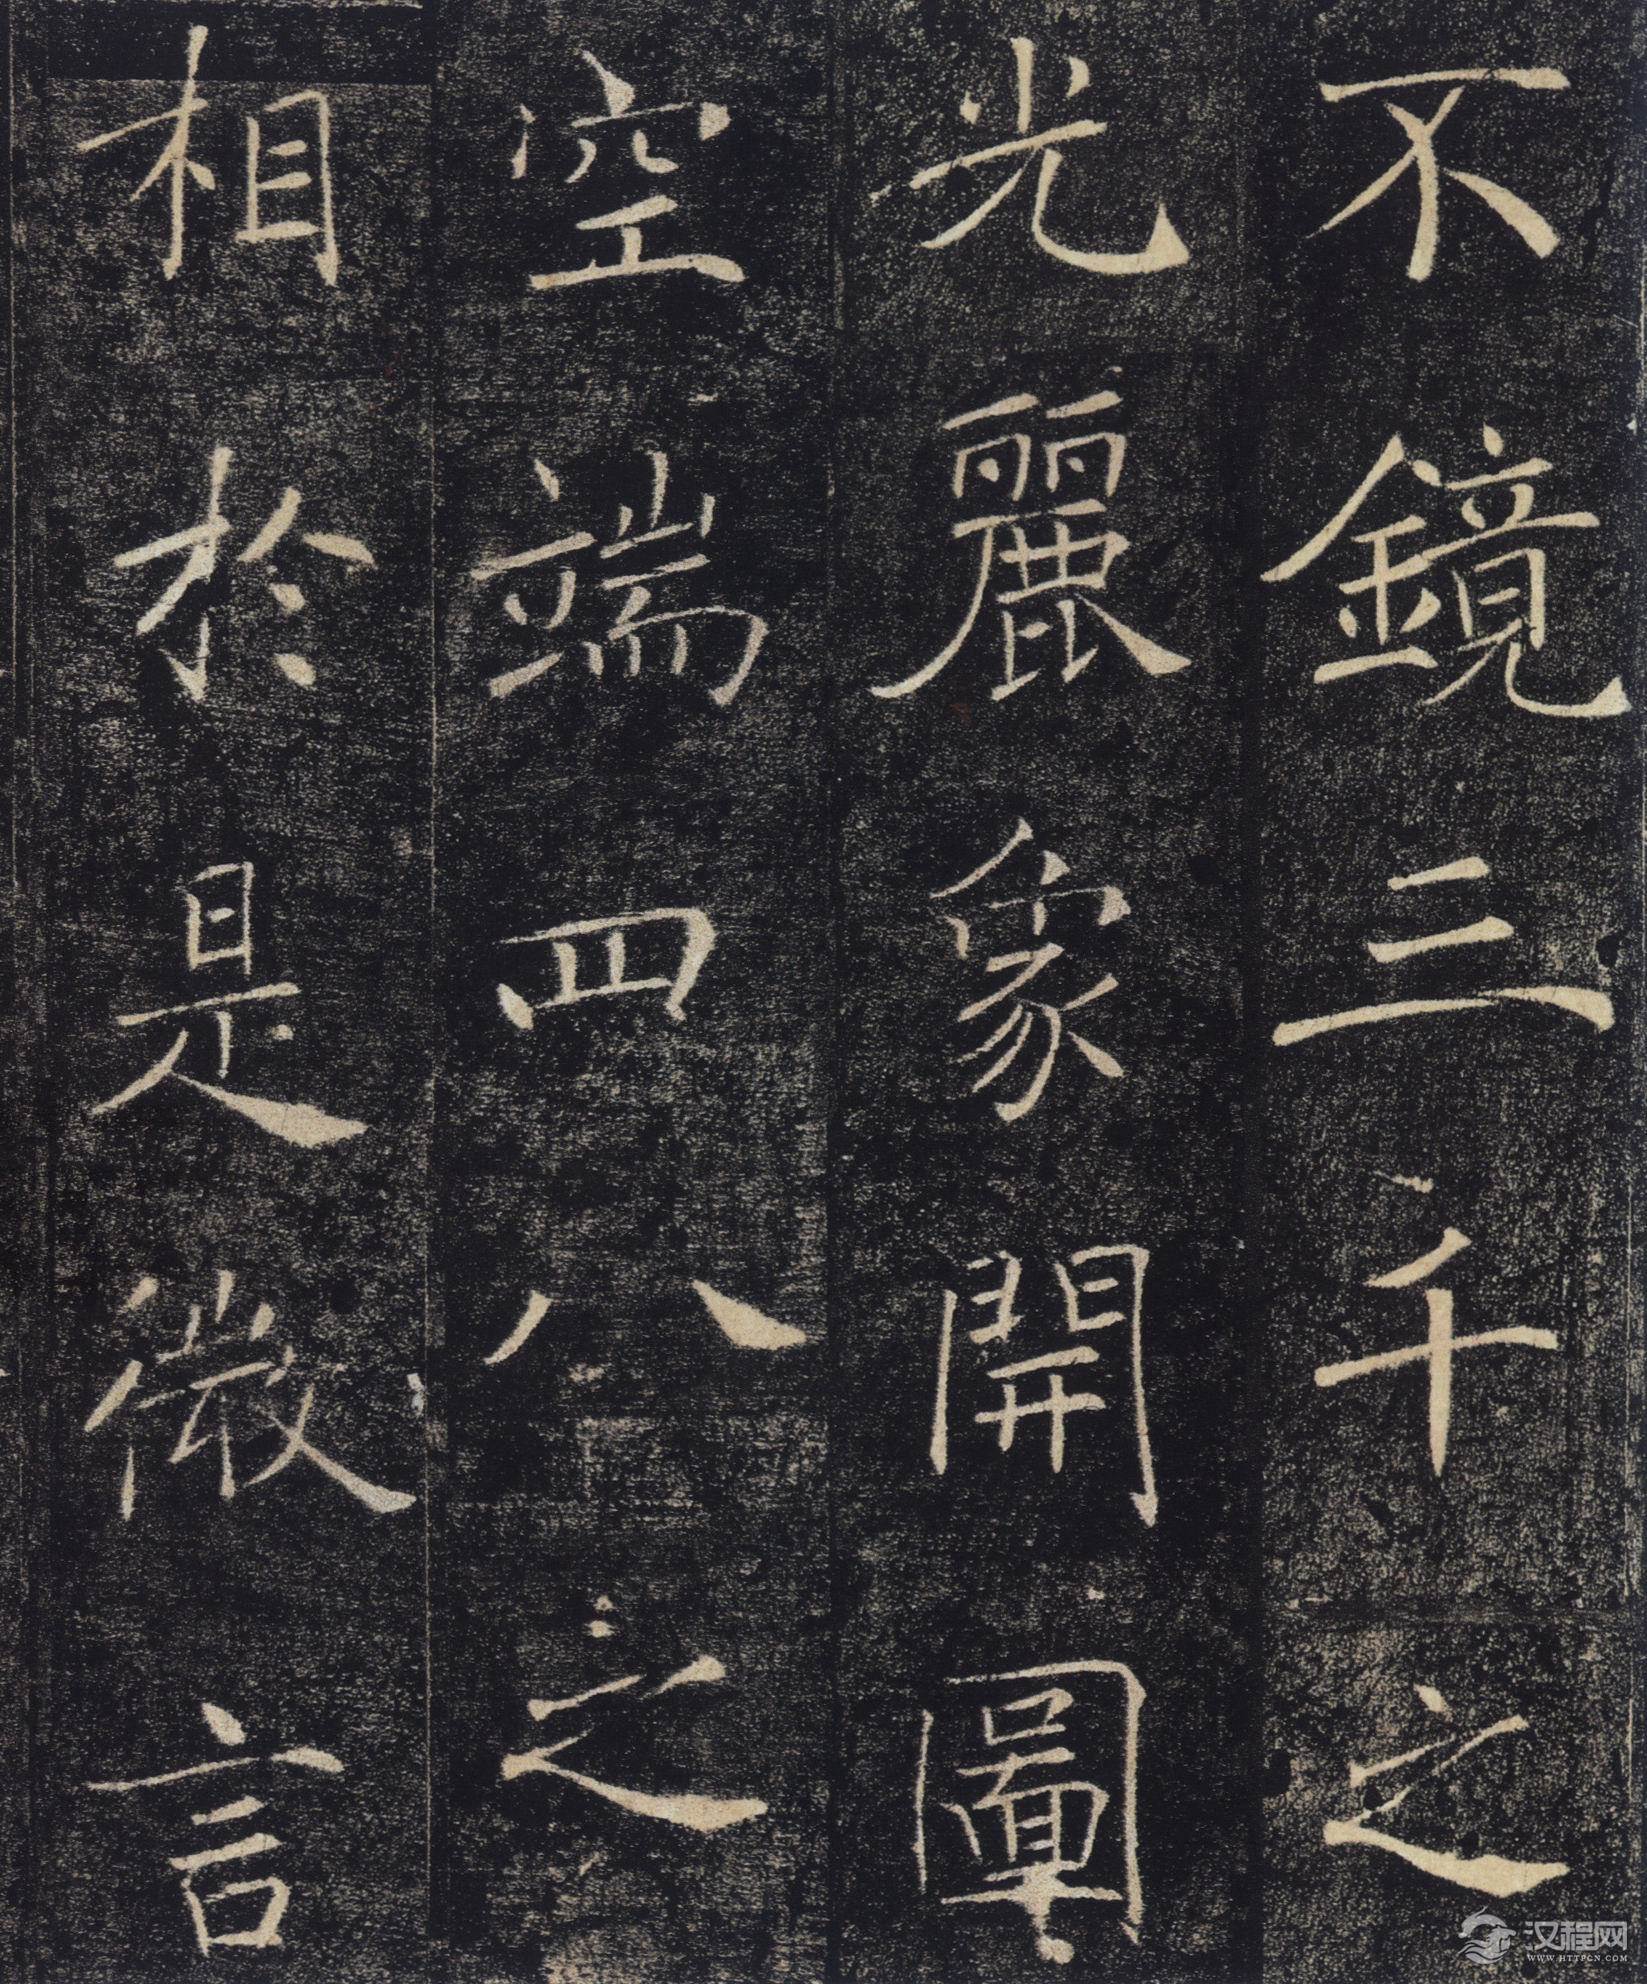 不鏡三千之
光麗象開圖
空端四八之
相於是微言
汉程网
WWW.HTTPCN.COM